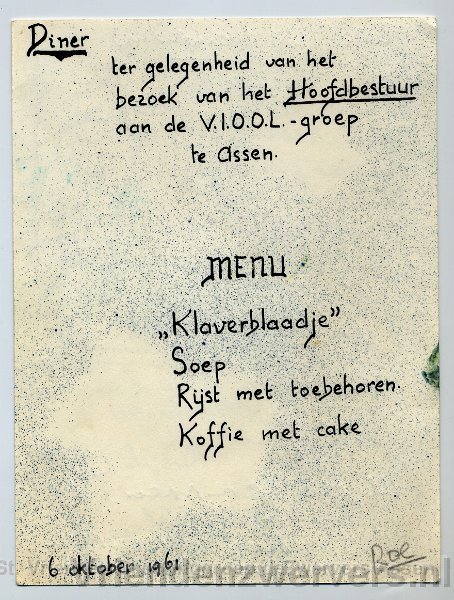 Diner
ter gelegenheid van het
bezoek van het Hoofdbestuur
aan de V.I.O.O.L.-groep
te Assen.
MENU
„Klaverblaadje”
Soep
Rijst met toebehoren.
Koffie met cake
6 oktober 1961
vriendenzwervers.nl